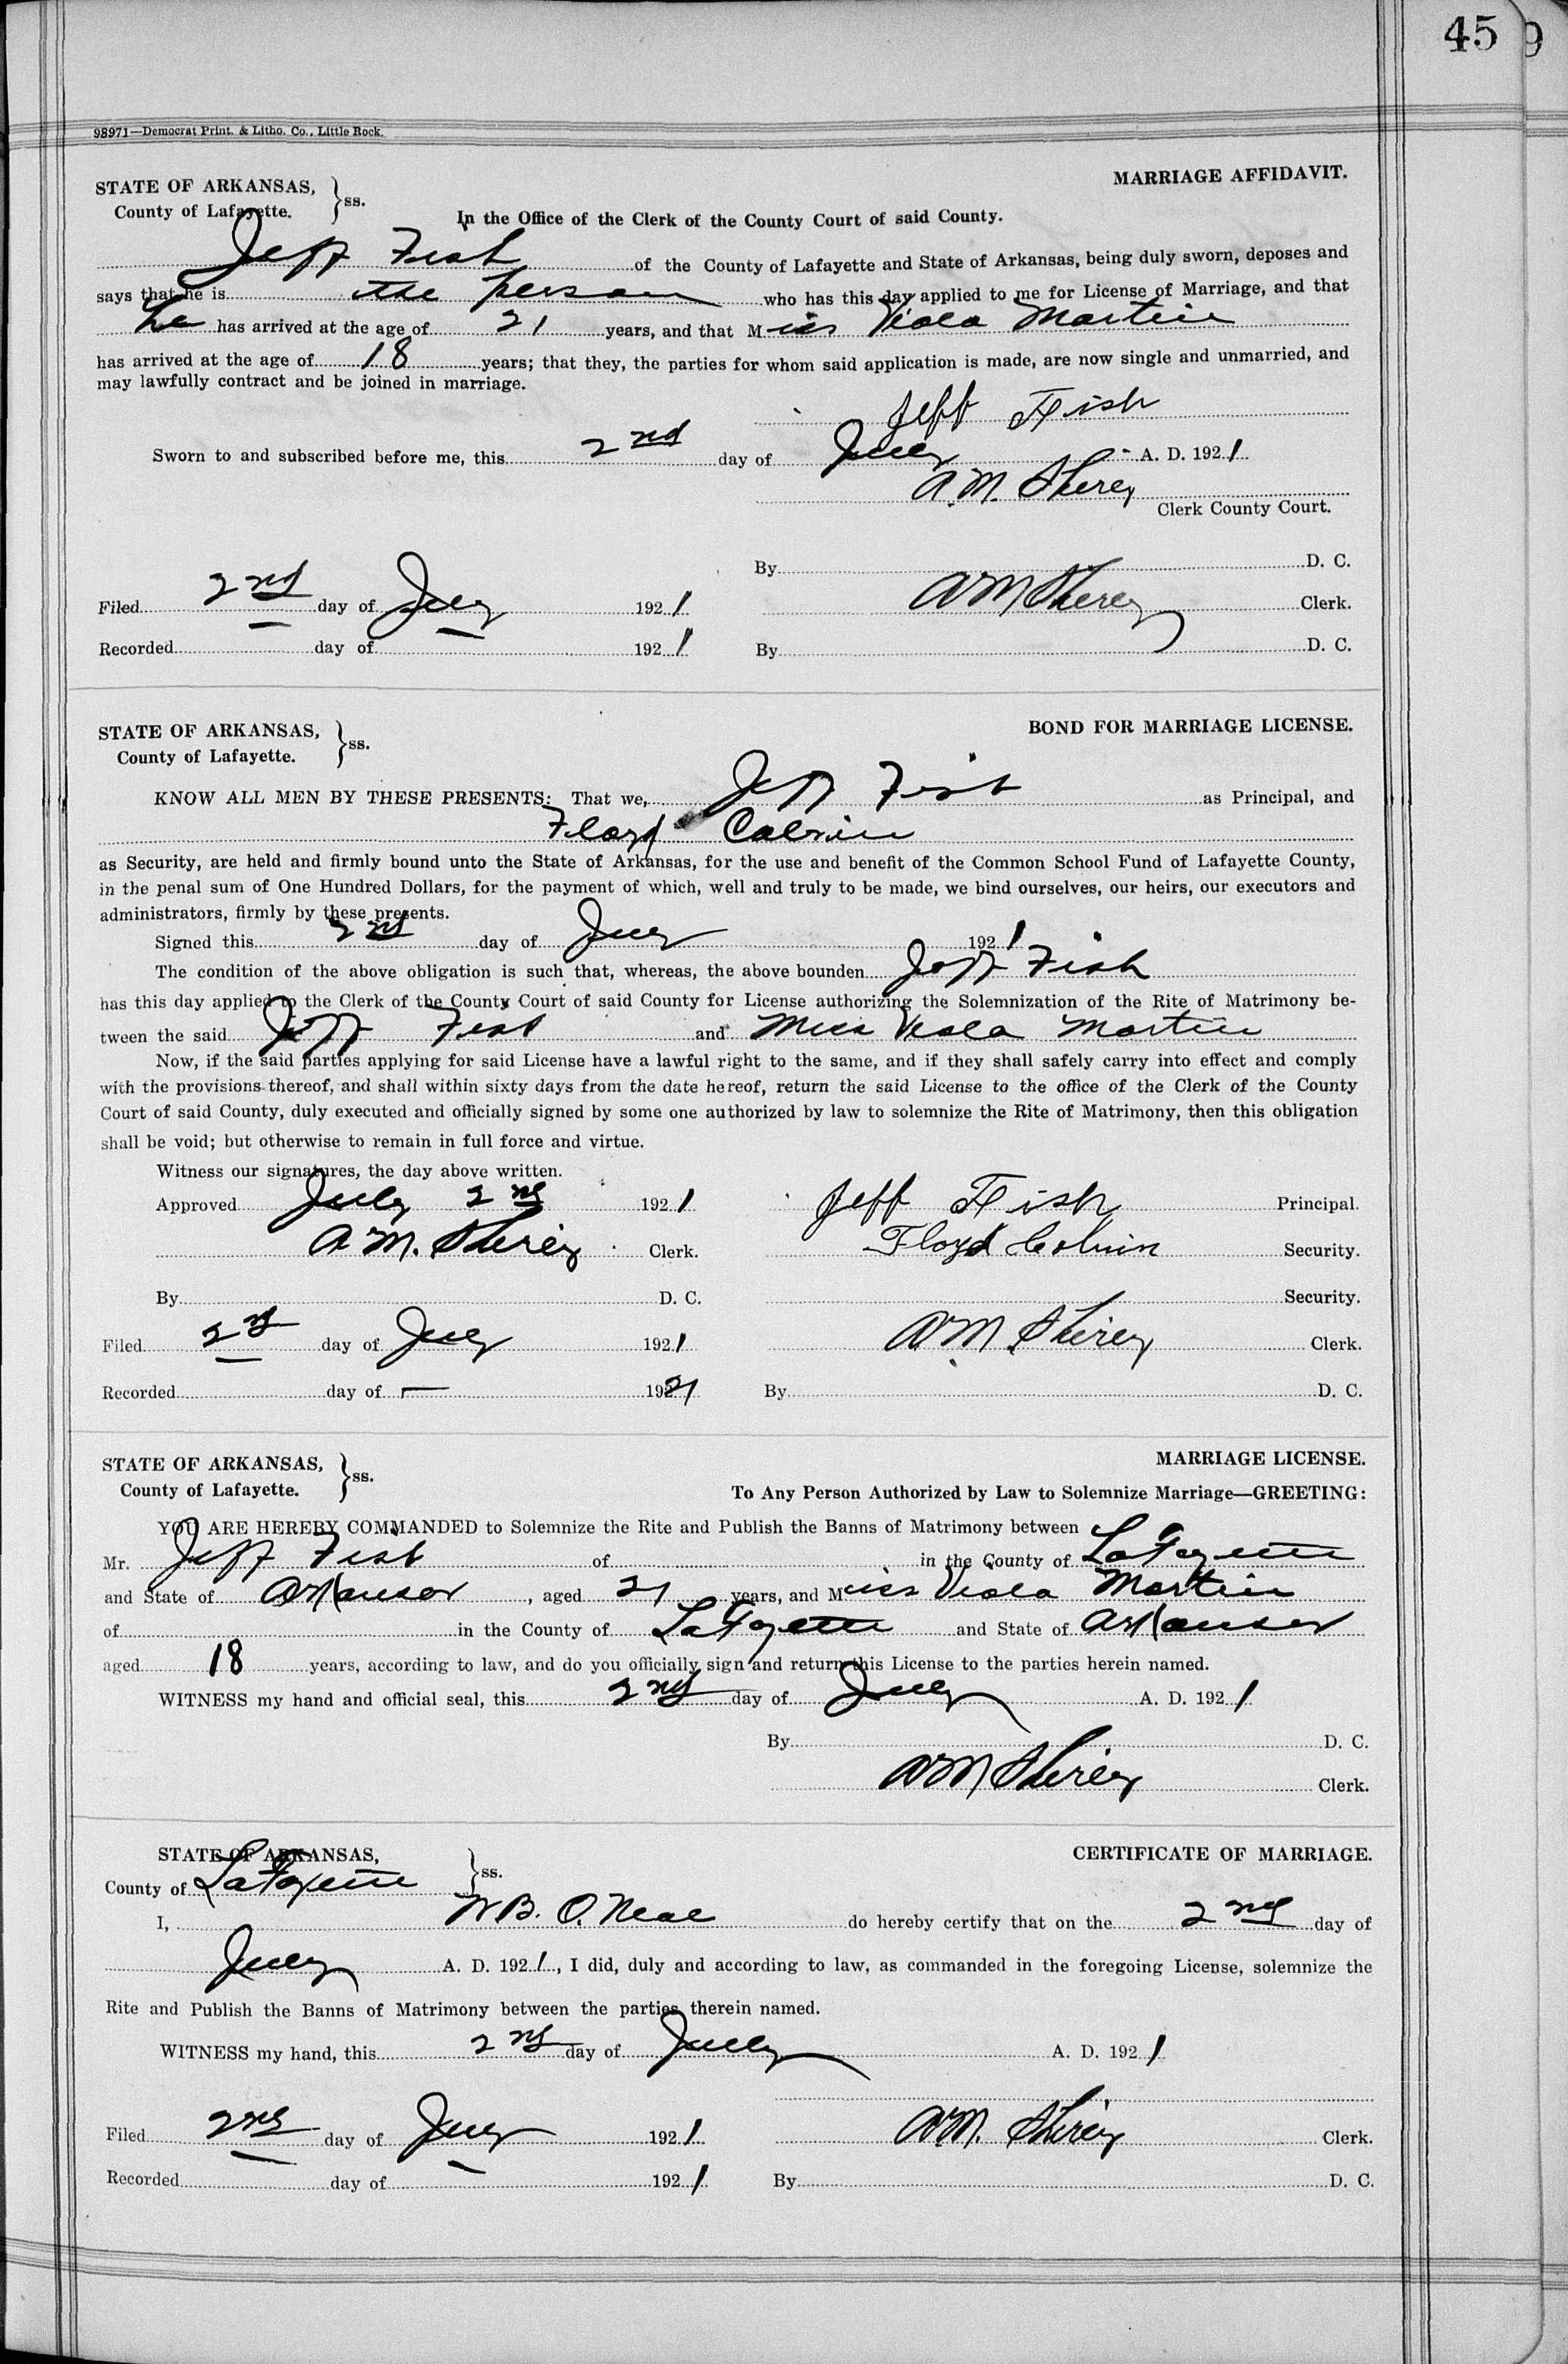 45 9
98971—Democrat Print. & Litho. Co., Little Rock.
STATE OF ARKANSAS, } ss. MARRIAGE AFFIDAVIT.
County of Lafayette.
In the Office of the Clerk of the County Court of said County.
Jeff Fish of the County of Lafayette and State of Arkansas, being duly sworn, deposes and
says that he is the person who has this day applied to me for License of Marriage, and that
he has arrived at the age of 21 years, and that Miss Viola Martin
has arrived at the age of 18 years; that they, the parties for whom said application is made, are now single and unmarried, and
may lawfully contract and be joined in marriage.
Jeff Fish
Sworn to and subscribed before me, this 2nd day of July A. D. 1921
A. M. Shirey
Clerk County Court.
By D. C.
Filed 2nd day of July 1921 A M Shirey Clerk.
Recorded day of 1921 By D. C.
STATE OF ARKANSAS, } ss. BOND FOR MARRIAGE LICENSE.
County of Lafayette.
KNOW ALL MEN BY THESE PRESENTS: That we, Jeff Fish as Principal, and
Floyd Colvin
as Security, are held and firmly bound unto the State of Arkansas, for the use and benefit of the Common School Fund of Lafayette County,
in the penal sum of One Hundred Dollars, for the payment of which, well and truly to be made, we bind ourselves, our heirs, our executors and
administrators, firmly by these presents.
Signed this 2nd day of July 1921
The condition of the above obligation is such that, whereas, the above bounden Jeff Fish
has this day applied to the Clerk of the County Court of said County for License authorizing the Solemnization of the Rite of Matrimony be-
tween the said Jeff Fish and Miss Viola Martin
Now, if the said parties applying for said License have a lawful right to the same, and if they shall safely carry into effect and comply
with the provisions thereof, and shall within sixty days from the date hereof, return the said License to the office of the Clerk of the County
Court of said County, duly executed and officially signed by some one authorized by law to solemnize the Rite of Matrimony, then this obligation
shall be void; but otherwise to remain in full force and virtue.
Witness our signatures, the day above written.
Approved July 2nd 1921 Jeff Fish Principal.
A M. Shirey Clerk. Floyd Colvin Security.
By D. C. Security.
Filed 2nd day of July 1921 A M. Shirey Clerk.
Recorded day of — 1921 By D. C.
STATE OF ARKANSAS, } ss. MARRIAGE LICENSE.
County of Lafayette.
To Any Person Authorized by Law to Solemnize Marriage—GREETING:
YOU ARE HEREBY COMMANDED to Solemnize the Rite and Publish the Banns of Matrimony between
Mr. Jeff Fish of in the County of LaFayette
and State of Arkansas, aged 21 years, and Miss Viola Martin
of in the County of LaFayette and State of Arkansas
aged 18 years, according to law, and do you officially sign and return this License to the parties herein named.
WITNESS my hand and official seal, this 2nd day of July A. D. 1921
By D. C.
A M Shirey Clerk.
STATE OF ARKANSAS, } ss. CERTIFICATE OF MARRIAGE.
County of LaFayette
I, W B. O. Neal do hereby certify that on the 2nd day of
July A. D. 1921, I did, duly and according to law, as commanded in the foregoing License, solemnize the
Rite and Publish the Banns of Matrimony between the parties therein named.
WITNESS my hand, this 2nd day of July A. D. 1921
Filed 2nd day of July 1921 A M. Shirey Clerk.
Recorded day of 1921 By D. C.